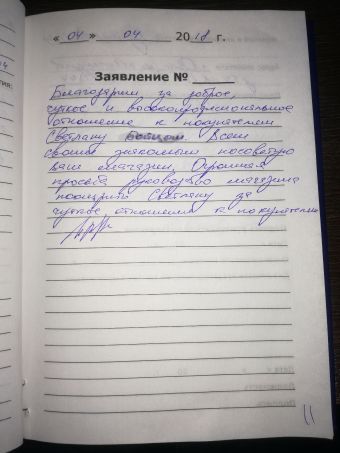 « 04 » 04 2018 г.
Заявление №
Благодарим за доброе,
чуткое и высокопрофессиональное
отношение к покупателям
Светлану Всем
своим знакомым посоветую
ваш магазин. Огромная
просьба руководство магазина
поощрить Светлану за
чуткое отношение к покупателю
11